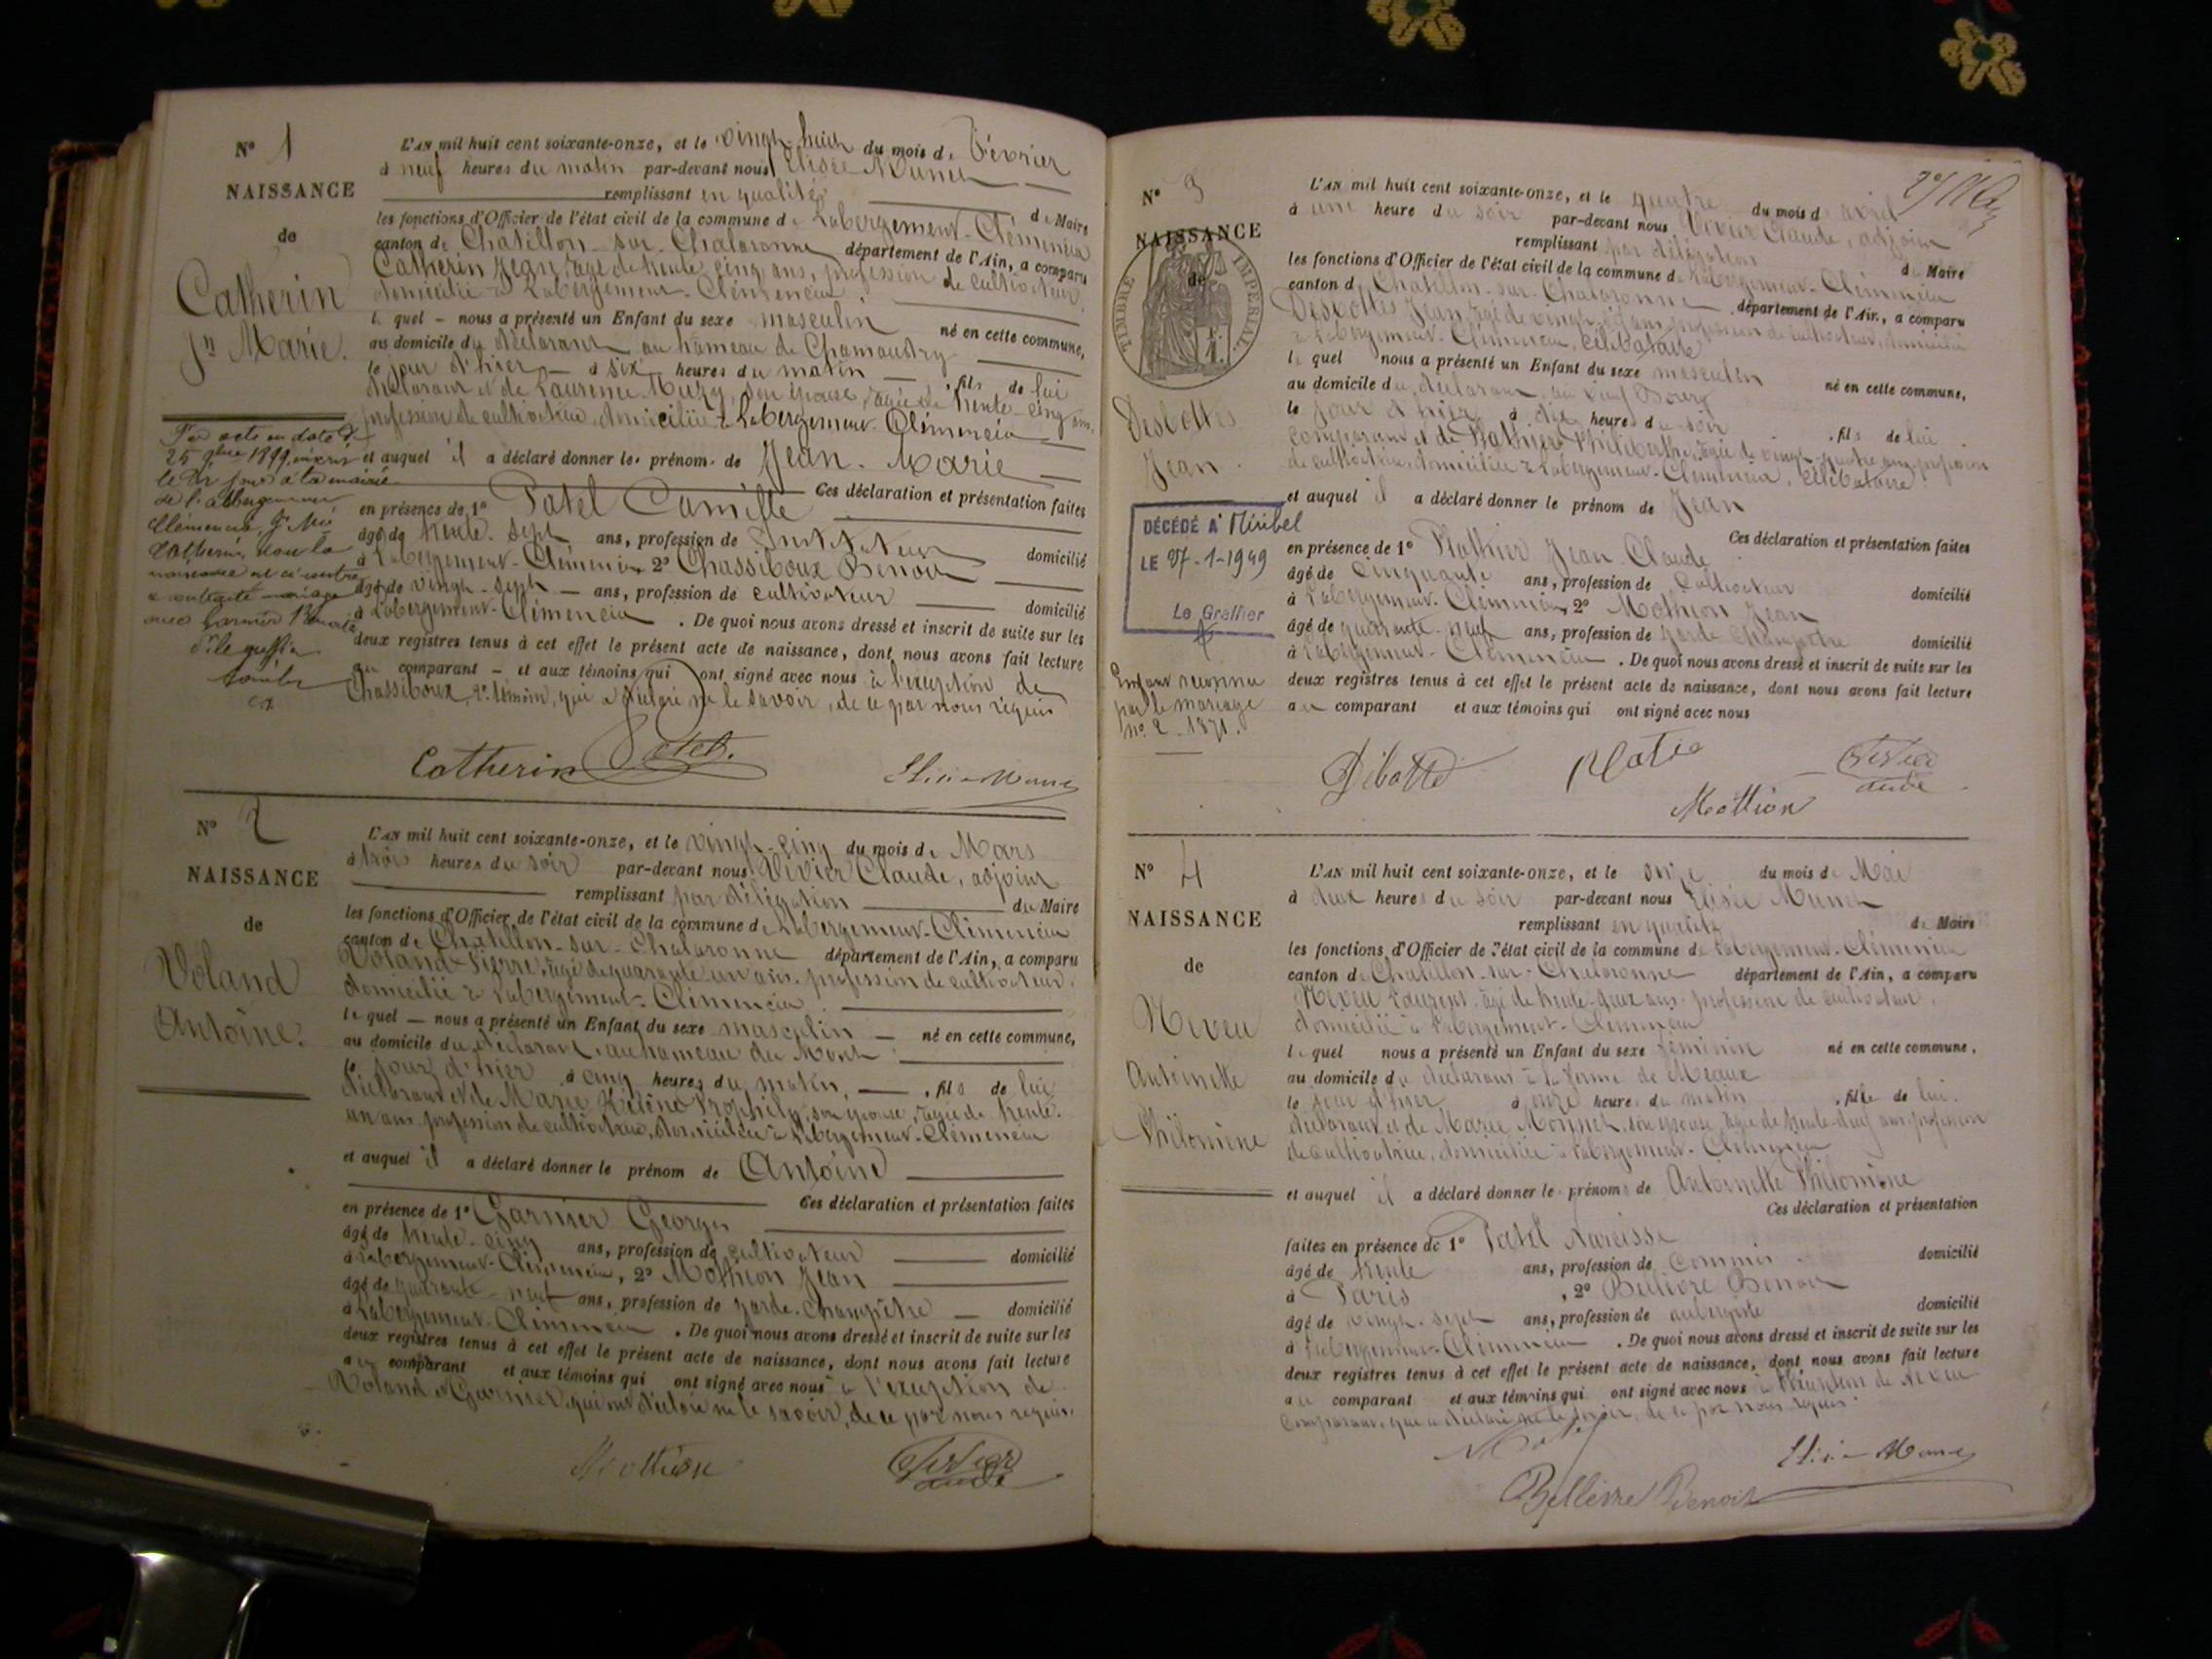 N° 1
NAISSANCE
de
Catherin
Jn Marie.
L'AN mil huit cent soixante-onze, et le vingt-huit du mois de Février
à neuf heures du matin par-devant nous Elisée Munet
remplissant en qualité de Maire
les fonctions d'Officier de l'état civil de la commune de Labergement-Clémencia
canton de Chatillon-sur-Chalaronne département de l'Ain, a comparu
Catherin Jean, âgé de trente cinq ans, profession de cultivateur
domicilié à Labergement-Clémencia,
le quel - nous a présenté un Enfant du sexe masculin né en cette commune,
au domicile du déclarant au hameau de
le jour d'hier - à six heures du matin, fils de lui
déclarant et de Laurence Muzy, son épouse, âgée de trente-cinq ans,
profession de cultivatrice, domiciliée à Labergement-Clémencia
et auquel il a déclaré donner les prénoms de Jean-Marie
Ces déclaration et présentation faites
en présence de 1° Patel Camille
âgé de trente-sept ans, profession de Instituteur domicilié
à Labergement-Clémencia, 2° Chassiboux Benoit
âgé de vingt-sept - ans, profession de cultivateur domicilié
à Labergement-Clémencia. De quoi nous avons dressé et inscrit de suite sur les
deux registres tenus à cet effet le présent acte de naissance, dont nous avons fait lecture
au comparant - et aux témoins qui ont signé avec nous à l'exception de
Chassiboux, 2e témoin, qui a déclaré ne le savoir, de ce par nous requis
Par acte en date du
25 9bre 1899, inscrit
le dit jour à la mairie
de l'abergement
Clémencia, Jn Mie
Catherin, dont la
naissance est ci-contre
a contracté mariage
avec
Catherin Patel. Elisée Munet
N° 2
NAISSANCE
de
Voland
Antoine.
L'AN mil huit cent soixante-onze, et le vingt-cinq du mois de Mars
à trois heures du soir par-devant nous Vivier Claude, adjoint
remplissant par délégation du Maire
les fonctions d'Officier de l'état civil de la commune de Labergement-Clémencia
canton de Chatillon-sur-Chalaronne département de l'Ain, a comparu
Voland Pierre, âgé de quarante un ans, profession de cultivateur,
domicilié à Labergement-Clémencia
le quel - nous a présenté un Enfant du sexe masculin - né en cette commune,
au domicile du déclarant, au hameau du Mont
le jour d'hier à cinq heures du matin, fils de lui
déclarant et de Marie Hélène, son épouse, âgée de trente-
un ans, profession de cultivatrice, domiciliée à Labergement-Clémencia
et auquel il a déclaré donner le prénom de Antoine
Ces déclaration et présentation faites
en présence de 1° Garnier Georges
âgé de trente-cinq ans, profession de cultivateur domicilié
à Labergement-Clémencia, 2° Mothion Jean
âgé de quarante-neuf ans, profession de garde-champêtre - domicilié
à Labergement-Clémencia. De quoi nous avons dressé et inscrit de suite sur les
deux registres tenus à cet effet le présent acte de naissance, dont nous avons fait lecture
au comparant et aux témoins qui ont signé avec nous à l'exception de
Voland et Garnier, qui ont déclaré ne le savoir, de ce par nous requis.
Mothion Vivier
N° 3
NAISSANCE
de
TIMBRE IMPERIAL
Desbottes
Jean.
L'AN mil huit cent soixante-onze, et le quatre du mois d'avril
à une heure du soir par-devant nous Vivier Claude, adjoint
remplissant par délégation du Maire
les fonctions d'Officier de l'état civil de la commune de Labergement-Clémencia
canton de Chatillon-sur-Chalaronne département de l'Ain, a comparu
Desbottes Jean, âgé de vingt ans, profession de cultivateur, domicilié
à Labergement-Clémencia, célibataire
le quel nous a présenté un Enfant du sexe masculin né en cette commune,
au domicile du déclarant, au
le jour d'hier à dix heures du soir, fils de lui
comparant et de Plathier Philiberthe, âgée de vingt-quatre ans, profession
de cultivatrice, domiciliée à Labergement-Clémencia, célibataire
et auquel il a déclaré donner le prénom de Jean
Ces déclaration et présentation faites
en présence de 1° Plathier Jean-Claude
âgé de cinquante ans, profession de cultivateur domicilié
à Labergement-Clémencia, 2° Mothion Jean
âgé de quarante-neuf ans, profession de garde champêtre domicilié
à Labergement-Clémencia. De quoi nous avons dressé et inscrit de suite sur les
deux registres tenus à cet effet le présent acte de naissance, dont nous avons fait lecture
au comparant et aux témoins qui ont signé avec nous
DÉCÉDÉ A Miribel
LE 27-1-1949
Le Greffier
Enfant reconnu
par le mariage
no. 2 - 1871.
Mothion
N° 4
NAISSANCE
de
Niveu
Antoinette
Philomène
L'AN mil huit cent soixante-onze, et le onze du mois de Mai
à deux heures du soir par-devant nous Elisée Munet
remplissant en qualité de Maire
les fonctions d'Officier de l'état civil de la commune de Labergement-Clémencia
canton de Chatillon-sur-Chalaronne département de l'Ain, a comparu
Niveu Laurent, âgé de trente-deux ans, profession de cultivateur,
domicilié à Labergement-Clémencia
le quel nous a présenté un Enfant du sexe féminin né en cette commune,
au domicile du déclarant à la ferme de Meaux
le jour d'hier à onze heures du matin, fille de lui
déclarant et de Marie Monnet, son épouse, âgée de trente-deux ans, profession
de cultivatrice, domiciliée à Labergement-Clémencia
et auquel il a déclaré donner les prénoms de Antoinette Philomène
Ces déclaration et présentation
faites en présence de 1° Patel Narcisse
âgé de trente ans, profession de Commis domicilié
à Paris, 2° Bellièvre Benoit
âgé de vingt-sept ans, profession de aubergiste domicilié
à Labergement-Clémencia. De quoi nous avons dressé et inscrit de suite sur les
deux registres tenus à cet effet le présent acte de naissance, dont nous avons fait lecture
au comparant et aux témoins qui ont signé avec nous à l'exception de Niveu
comparant, qui a déclaré ne le savoir, de ce par nous requis.
Elisée Munet
Bellièvre Benoit